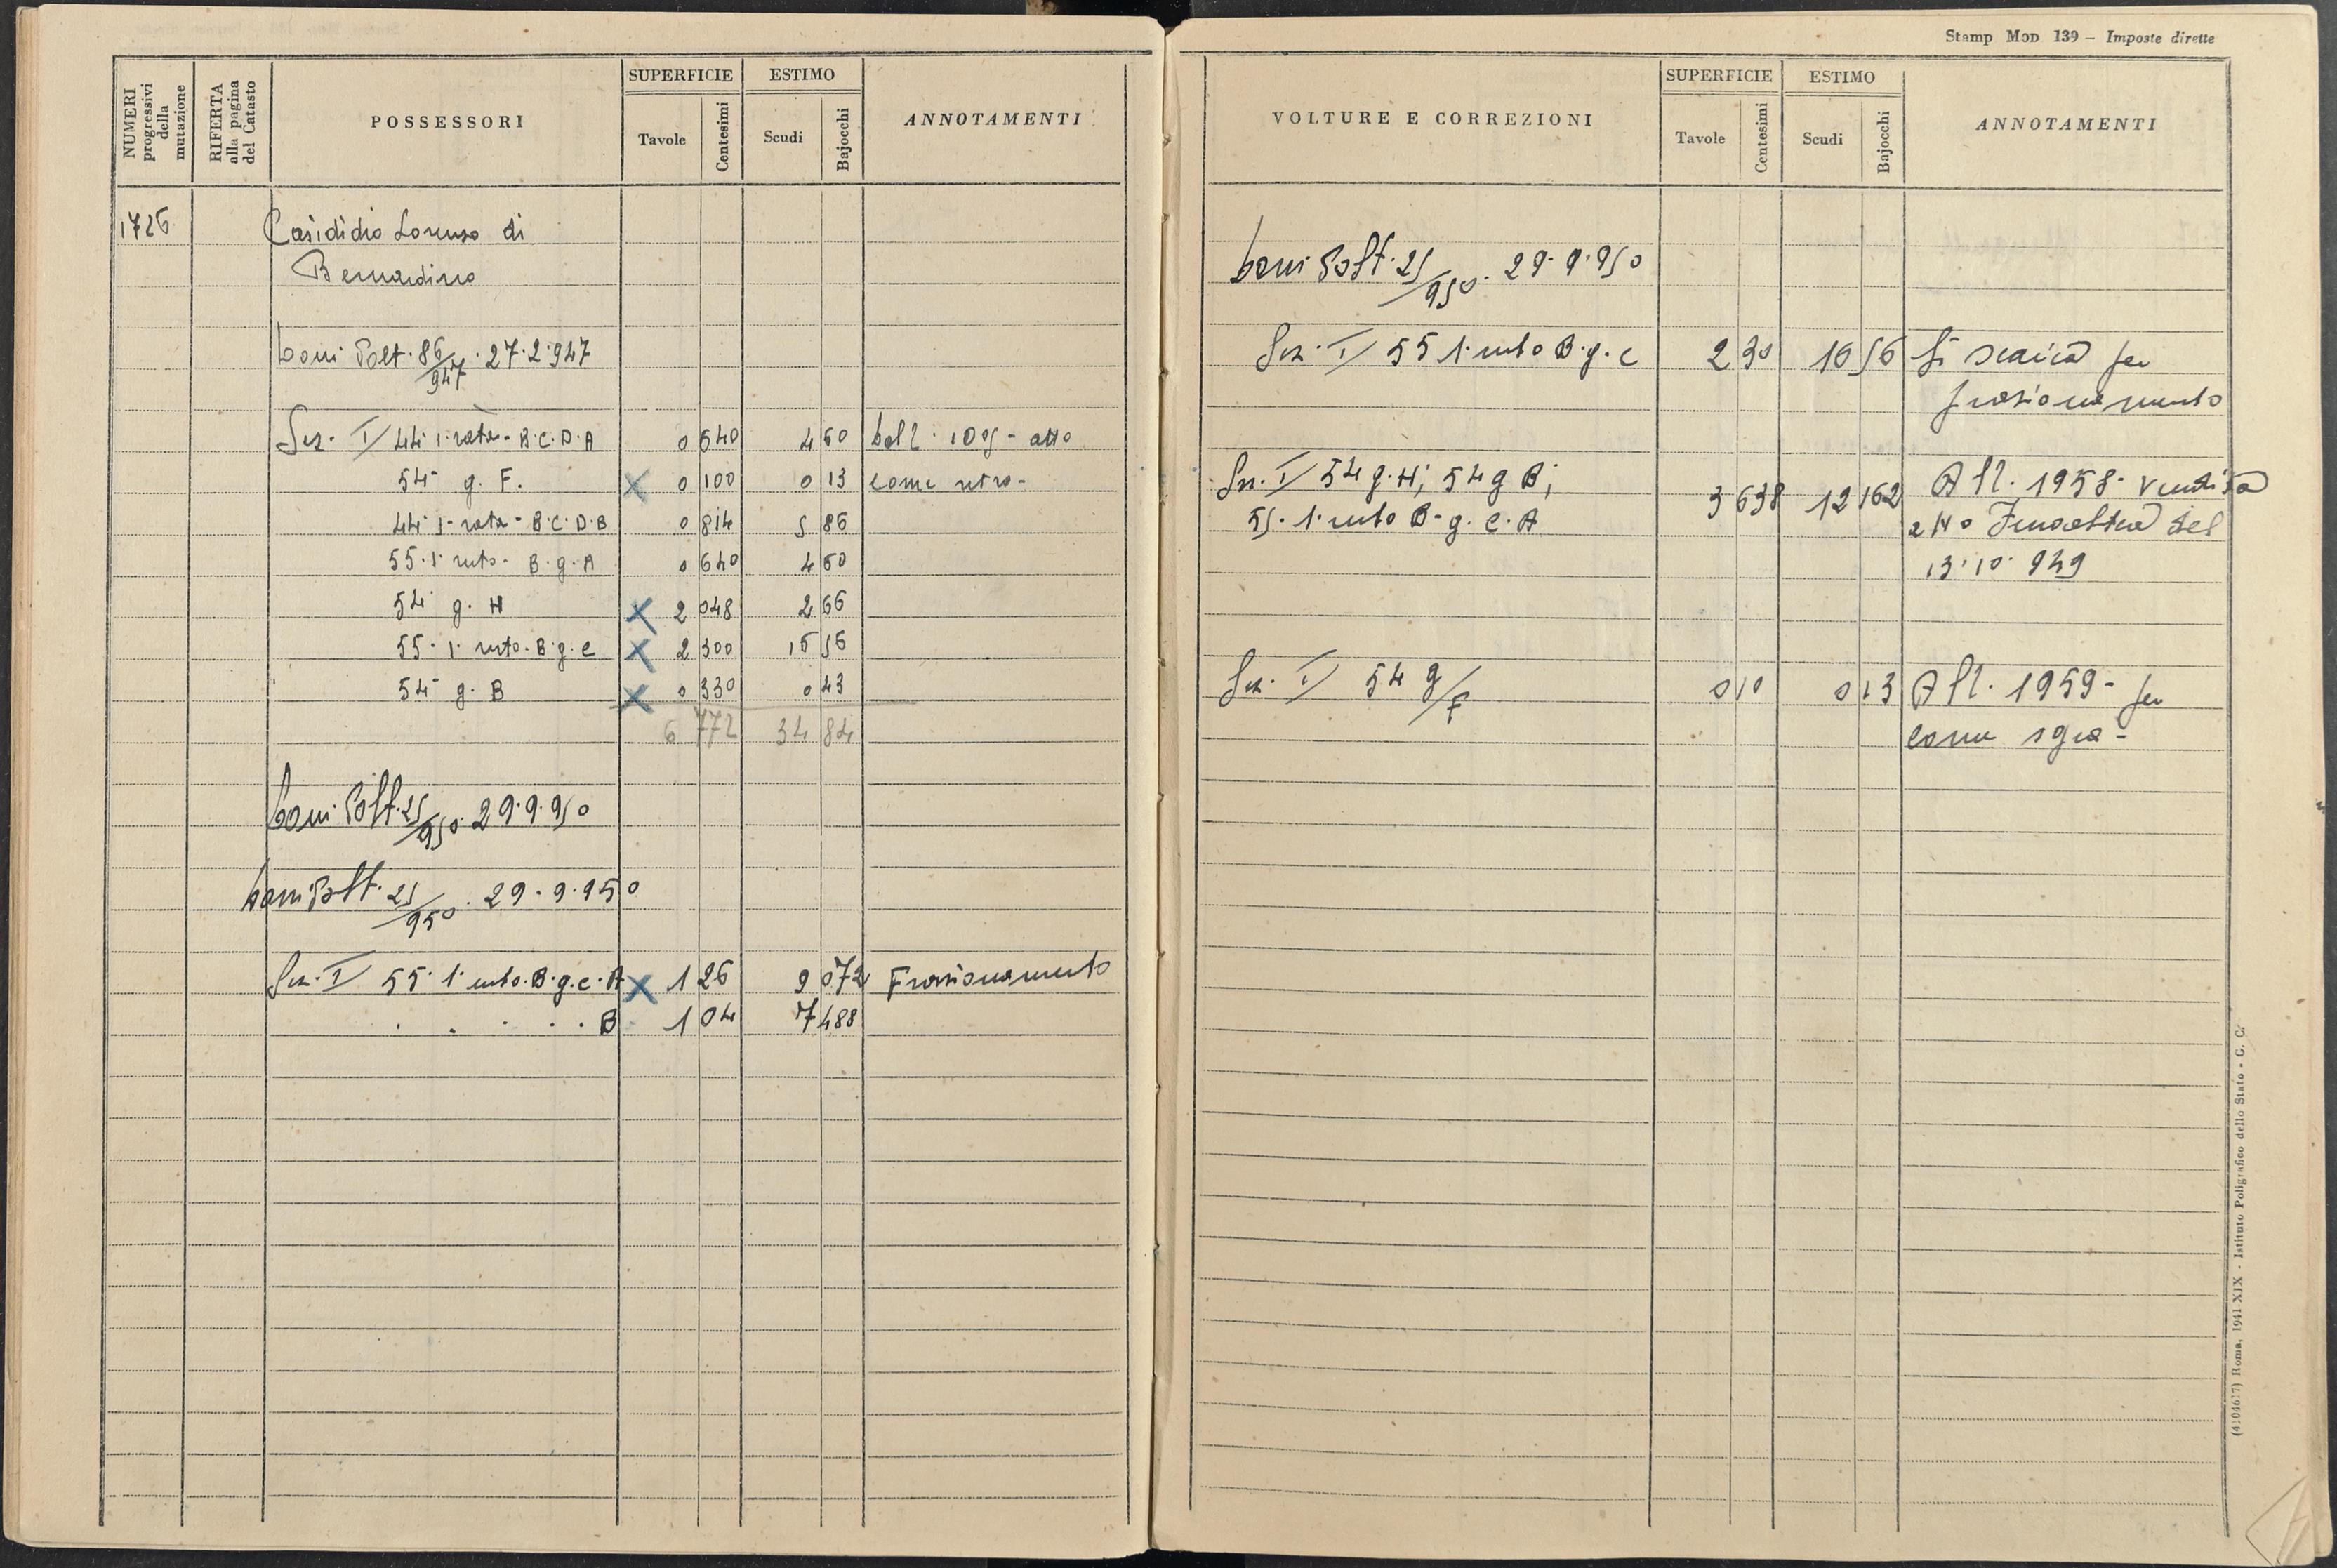 NUMERI progressivi della mutazione
RIFERTA alla pagina del Catasto
POSSESSORI
SUPERFICIE
Tavole
Centesimi
ESTIMO
Scudi
Bajocchi
ANNOTAMENTI
1726
Casididio Lorenzo di
Bernardino
86/947 . 27.2.947
Sez. I/ 44. 1. rata - B.C.D.A 0 640 4 60
54 g. F. X 0 100 0 13 come retro -
44 1. rata - B.C.D.B 0 814 5 86
55. 1. B.g.A 0 640 4 60
54 g. H X 2 048 2 66
55. 1. B.g.C X 2 300 16 56
54 g. B X 0 330 0 43
6 772 34 84
25/950. 29.9.950
25/950. 29.9.950
Sez. I/ 55. 1. B.g.C.A X 1 26 9 072 Frazionamento
. . . . . B 1 04 7 488
Stamp Mod 139 – Imposte dirette
VOLTURE E CORREZIONI
SUPERFICIE
Tavole
Centesimi
ESTIMO
Scudi
Bajocchi
ANNOTAMENTI
25/950. 29.9.950
Sez. I/ 55 1. B.g.C 2 30 16 56 Si scarica per
frazionamento
Sez. I/ 54 g.H; 54 g B; All. 1958 - vendita
55. 1. B.g.C.A 3 638 12 162 del
13.10.949
Sez. I/ 54 g/F 0 10 0 13 All. 1959 - per
come sopra -
(410461?) Roma, 1941-XIX - Istituto Poligrafico dello Stato - G. C.